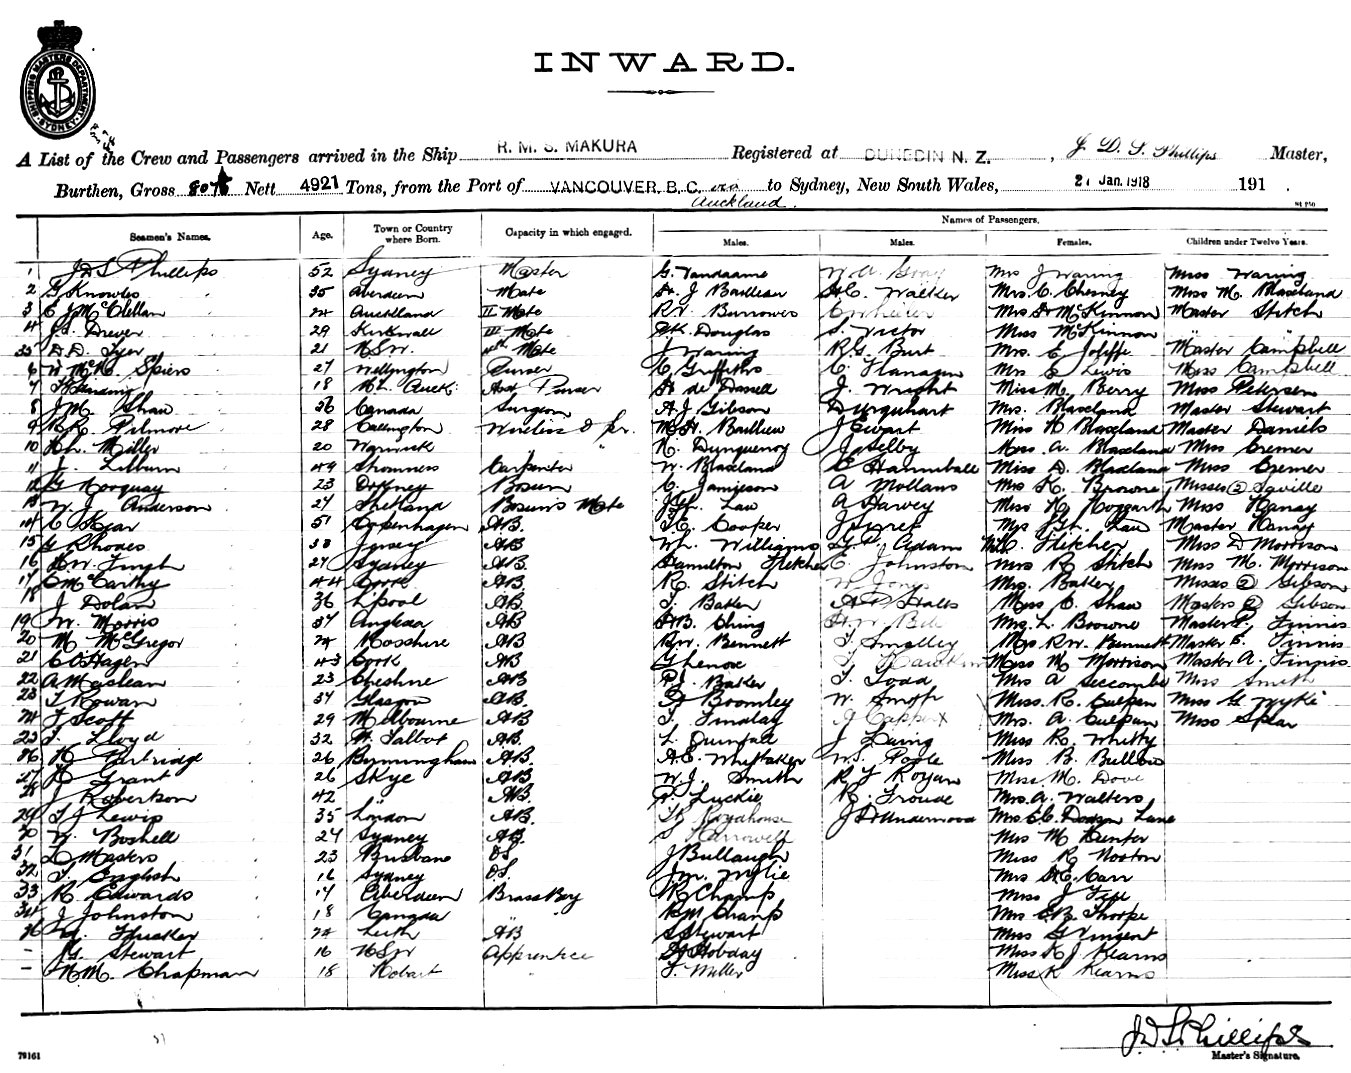 INWARD.
SHIPPING MASTERS DEPARTMENT SYDNEY
A List of the Crew and Passengers arrived in the Ship R. M. S. MAKURA Registered at DUNEDIN N. Z., J. D. S. Phillips Master,
Burthen, Gross 8075 Nett 4921 Tons, from the Port of VANCOUVER, B. C. via Auckland. to Sydney, New South Wales, 21 Jan. 1918 191 .
Names of Passengers.
Seamen's Names. Age. Town or Country where Born. Capacity in which engaged. Males. Males. Females. Children under Twelve Years.
1 J D S Phillips 52 Sydney Master G. Vandaame W. A. Gray Mrs J Waring Miss Waring
2 Knowles 35 Aberdeen Mate J Baillieu H. C. Walker Mrs. C. Chesney Miss M. Blaxland
3 C J McClellan 24 Auckland II Mate R. V. Burrowes Wheeler Mrs. McKinnon Master Stitch
4 J. S. Drever 29 Kirkwall III Mate K. Douglas S. Victor Miss McKinnon " "
D. D. Tyer 21 NSW. 4th Mate J Waring R. G. Burt Mrs. E Joliffe Master Campbell
6 Spiers 27 Wellington Purser C Griffiths C. Flanagan Mrs E Lewis Miss Campbell
7 18 N.Z. Auck: Asst Purser de Dassell J. Wright Miss M. Berry Miss Petersen
8 J. M. Shaw 36 Canada Surgeon A. J Gibson D Urquhart Mrs. Blaxland Master Stewart
9 Pilmore 28 Callington Wireless Opr. Baillieu J Ewart Miss N Blaxland Master Daniels
10 Miller 20 Warwick " N. Dunquenoy J Selby Miss A. Blaxland Miss Cremer
11 J. Lilburn 49 Stromness Carpenter W. Blaxland E Hanniball Miss D. Blaxland Miss Cremer
12 G Norquay 23 Orkney Bosun C. Jamieson A Mollans Mrs K. Browne Misses (2) Saville
13 W. J. Anderson 27 Shetland Bosun's Mate Law A Harvey Miss K Hoggarth Miss Hanay
14 C Kear 51 Copenhagen A.B. H. Cooper J Syret Mrs Law Master Hanay
15 G Rhodes 38 Jersey A.B. Williams Adam Fletcher Miss D Morrison
16 Fingh 27 Sydney A.B. Hamilton Fletcher C. Johnston Mrs R Stitch Miss M. Morrison
17 C McCarthy 44 Cork A.B. R. Stitch W Jones Mrs. Baker Misses (2) Gibson
18 J Dolan 36 L'pool A.B. T. Baker Hales Miss E. Shaw Masters (2) Gibson
19 W. Morris 37 Anglesea A.B. A.B. Ching Bell Mrs. L. Browne Master P. Finnis
20 M McGregor 24 Rosshire A.B. R.W. Bennett T. Smalley Mrs R.W. Bennett Master E. Finnis
21 C O'Hagen 43 Cork A.B. G Lenox T. Hawkins Miss M. Morrison Master A. Finnis
22 A Maclean 23 Cheshire A.B. Baker T. Todd Mrs A Seccombe Miss Smith
23 T. Rowan 34 Glasgow A.B. Bromley W. Knopp Miss. R. Culpan Miss G Wylie
24 J Scott 29 Melbourne A.B. T. Finday J Capper x Mrs. A. Culpan Miss Spear
25 J. Lloyd 32 Pt. Talbot A.B. L. Dumfall J Laing Miss R. Whitty
26 Partridge 26 Birmingham A.B. A.E. Whittaker W. Poole Miss B. Bullen
27 Grant 26 Skye A.B. W. J. Smith R J Rogan Miss M. Dove
28 J Robertson 42 A.B. Luckie R. Froude Mrs. A. Walters
29 T J Lewis 35 London A.B. Royahouse J D Underwood Mrs. E.C. Dodson Lane
30 W. Boshell 24 Sydney A.B. S Farrowell Mrs M Bunter
31 L Masters 23 Brisbane O.S. J Bullaugh Miss R Norton
32 T. English 16 Sydney O.S. J.M. Wylie Mrs H.C. Carr
33 R Edwards 17 Aberdeen Brass Boy R Champ Miss J Fife
34 J Johnston 18 Canada " R M Champ Mrs E.B. Thorpe
Thicker 24 Leith A.B. S Stewart Miss G Vingent
- G. Stewart 16 NSW Apprentice Hobday Miss K J Kearns
- N.M. Chapman 18 Hobart " T. Miller Miss K Kearns
J D S Phillips
Master's Signature.
79161